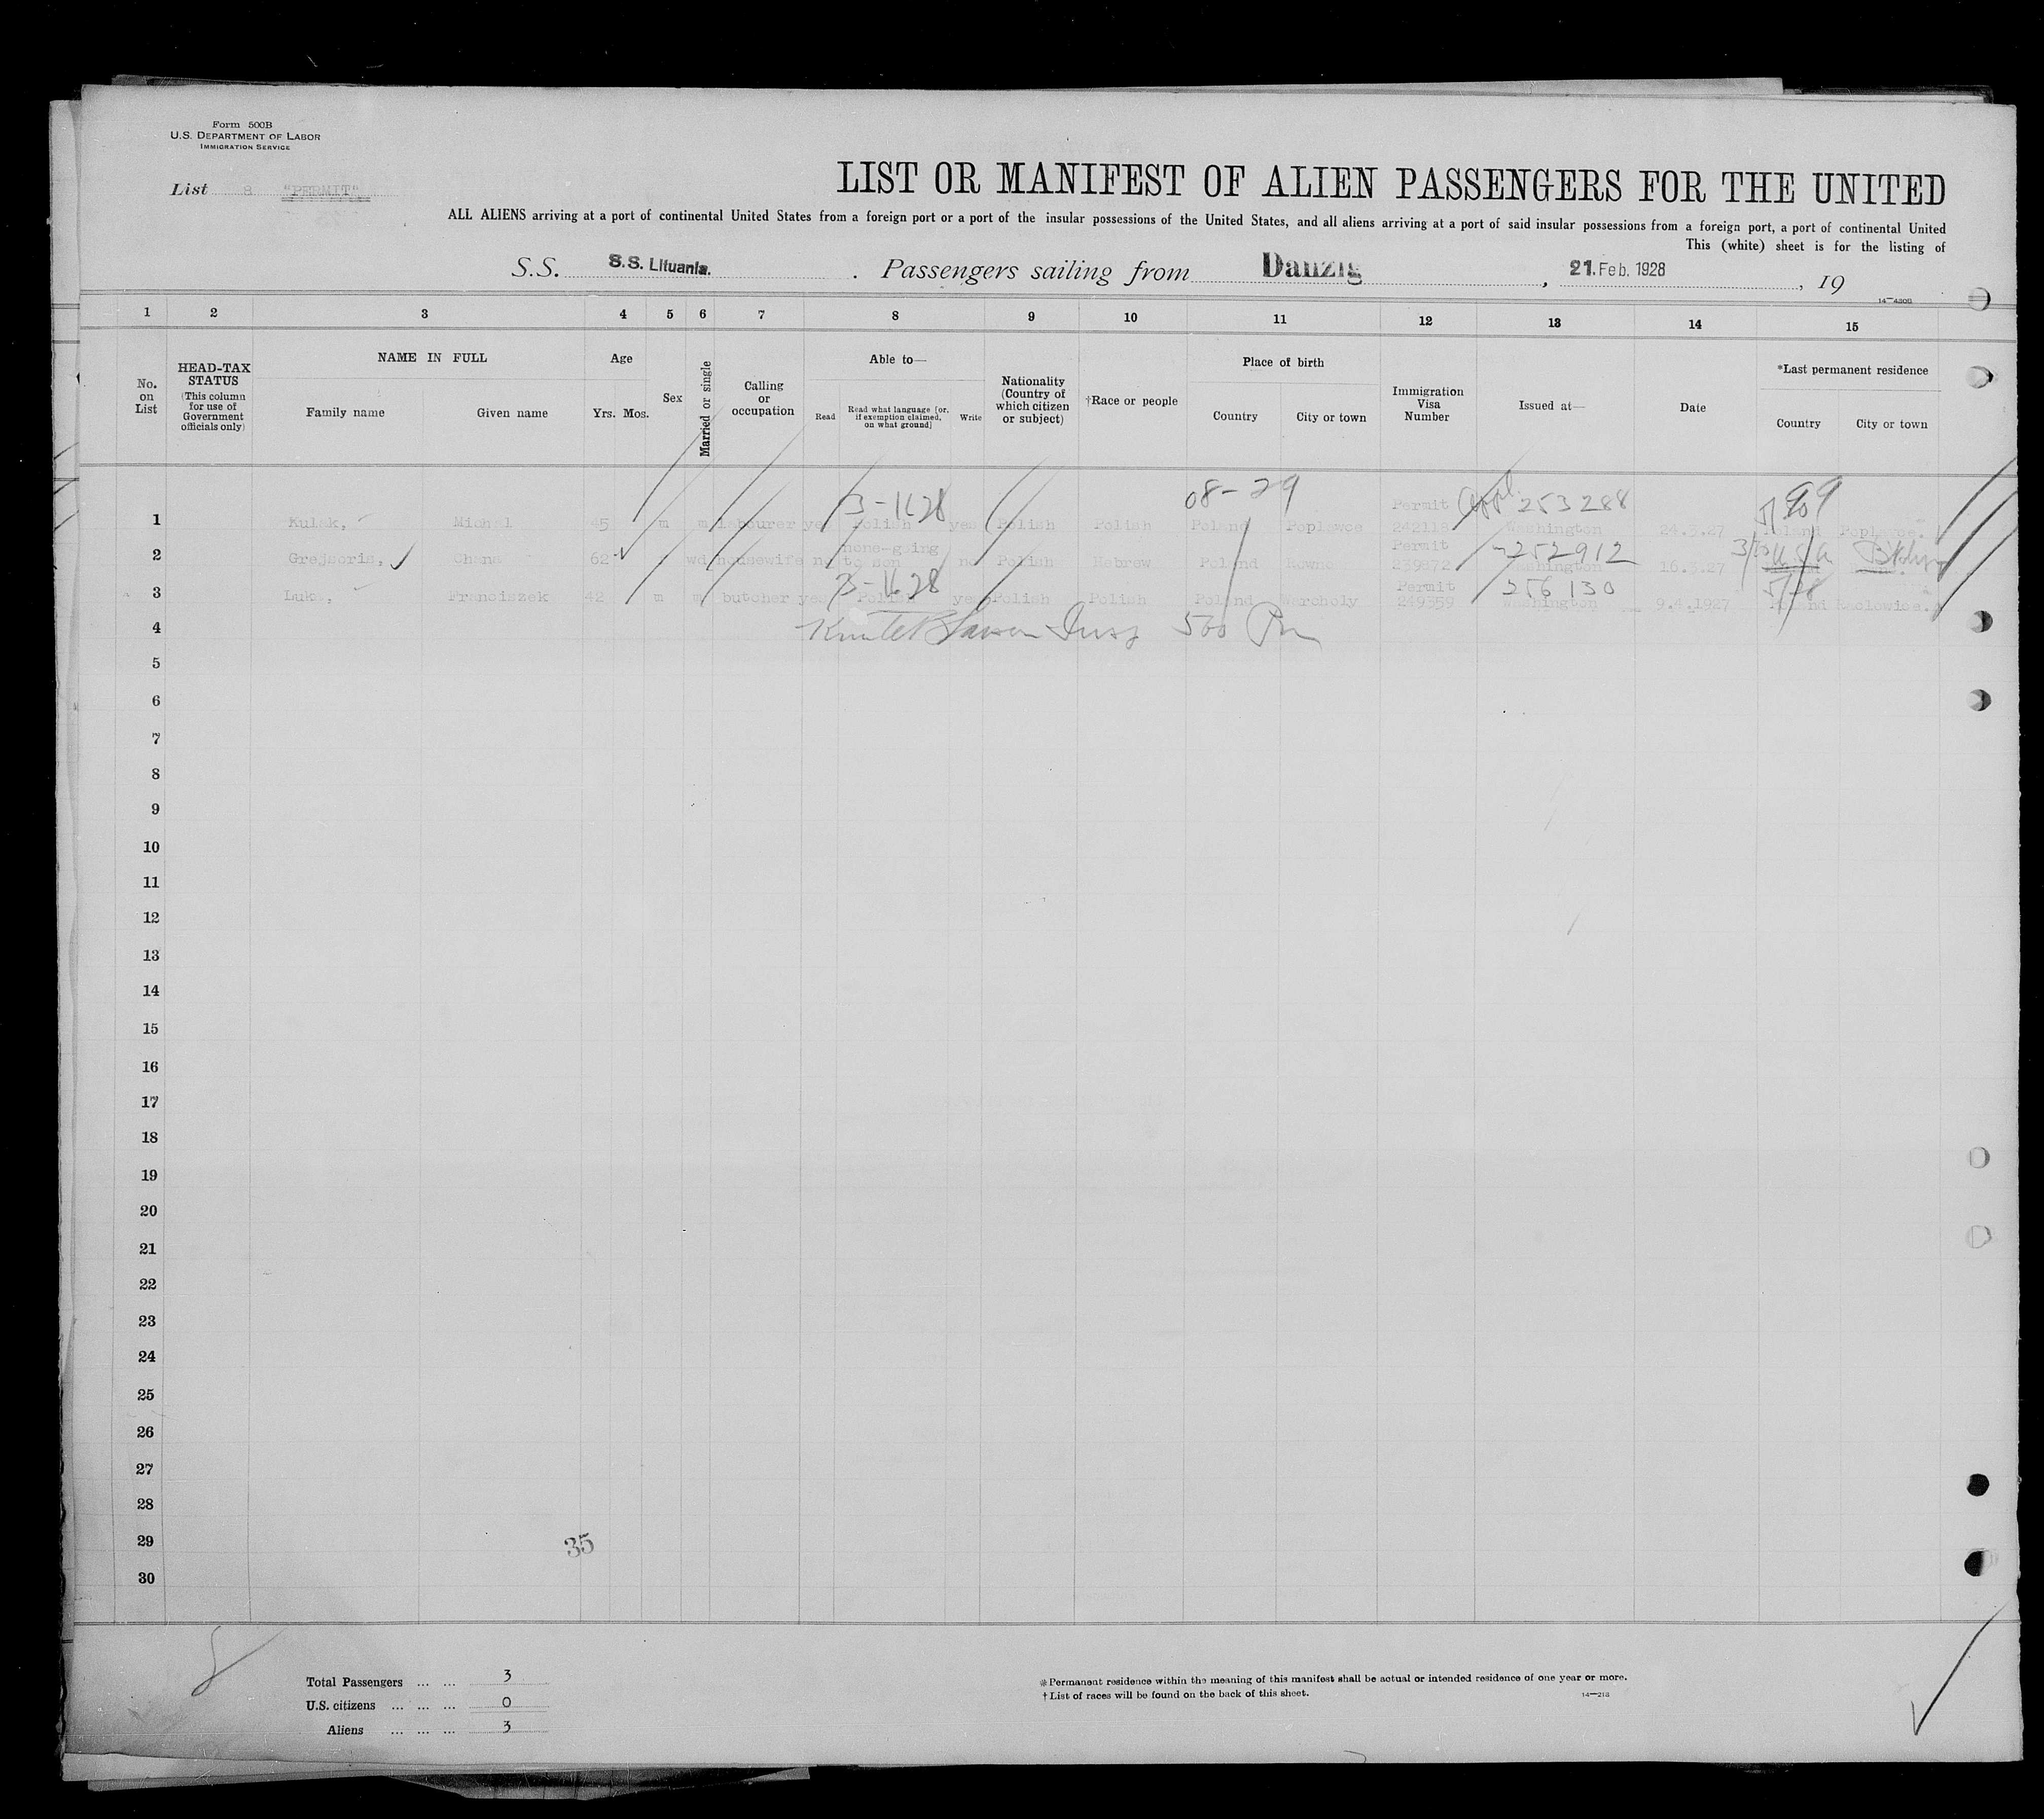 Form 500B
U.S. DEPARTMENT OF LABOR
IMMIGRATION SERVICE
List 8 "PERMIT"
LIST OR MANIFEST OF ALIEN PASSENGERS FOR THE UNITED
ALL ALIENS arriving at a port of continental United States from a foreign port or a port of the insular possessions of the United States, and all aliens arriving at a port of said insular possessions from a foreign port, a port of continental United
This (white) sheet is for the listing of
S.S. S.S. Lituania. Passengers sailing from Danzig, 21. Feb. 1928, 19
14—4308
1 2 3 4 5 6 7 8 9 10 11 12 13 14 15
No. on List
HEAD-TAX STATUS (This column for use of Government officials only)
NAME IN FULL
Family name Given name
Age
Yrs. Mos.
Sex
Married or single
Calling or occupation
Able to—
Read Read what language [or, if exemption claimed, on what ground] Write
Nationality (Country of which citizen or subject)
†Race or people
Place of birth
Country City or town
Immigration Visa Number
Issued at—
Date
*Last permanent residence
Country City or town
3-16 28 08-29 Permit 253288
1 Kulak, Michal 45 m m labourer yes Polish yes Polish Polish Poland Poplawce 242118 Washington 24.3.27 Poland
none-going Permit 252912 U S A Bklyn
2 Grejsoris, Chana 62 wd housewife no to son no Polish Hebrew Poland Rowno 239872 Washington 16.3.27
3-16 28 Permit 256130 5/28
3 Luks, Franciszek 42 m m butcher yes Polish yes Polish Polish Poland Warcholy 249359 Washington 9.4.1927 Poland Raclowica.
4 Larson Insp 500 Pm
5
6
7
8
9
10
11
12
13
14
15
16
17
18
19
20
21
22
23
24
25
26
27
28
29
35
30
Total Passengers ... ... 3
U.S. citizens ... ... ... 0
Aliens ... ... ... 3
*Permanent residence within the meaning of this manifest shall be actual or intended residence of one year or more.
†List of races will be found on the back of this sheet.
14—218